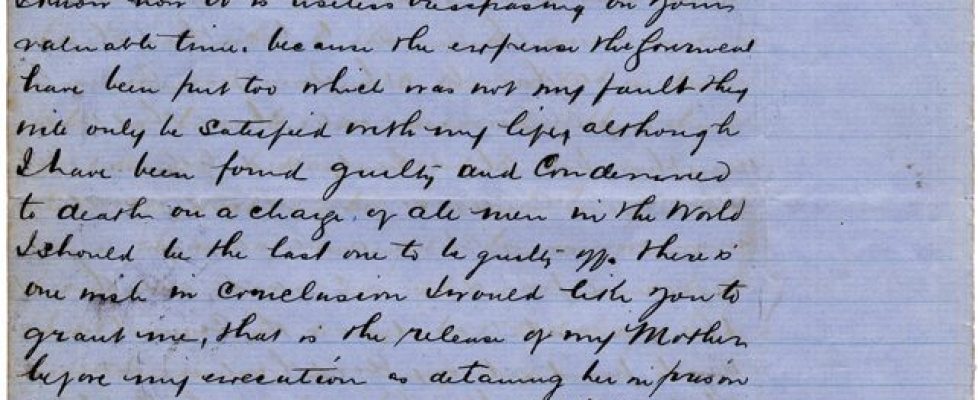 I know now it is useless tresspasing on your
valuable time. because the expense the Goverment
have been put too which was not my fault they
will only be satisfied with my life, although
I have been found guilty and Condemned
to death on a charge of all men in the World
I should be the last one to be guilty off. there is
one wish in conclusion I would like you to
grant me, that is the release of my Mother
before my execution as detaining her in prison